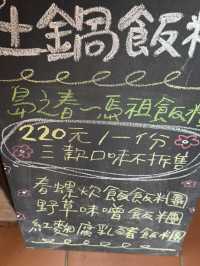 土鍋飯糰
島之春～馬祖飯糰
220元/一份
三款口味不拆售
香煙炊飯飯糰
野草味噌飯糰
紅麴腐乳豬飯糰